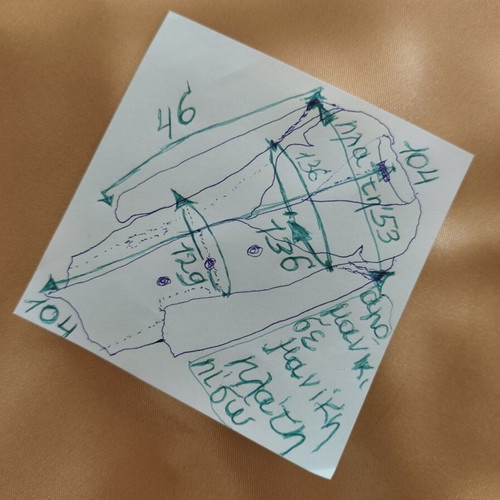 46
104
136
πλάτη 53
136
129
104
από
μανικι
σε
μανίκη
πλάτη
πίσω